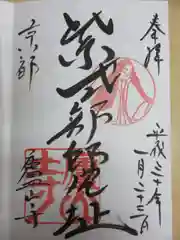 奉拝
平成三十年
一月二十二日
紫式部邸址
京都
廬山寺